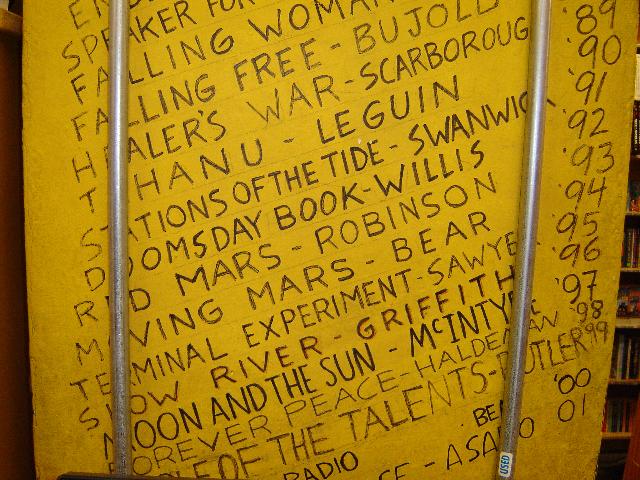 SPEAKER FOR
FALLING WOMAN '89
FALLING FREE - BUJOLD '90
HEALER'S WAR - SCARBOROUG '91
TEHANU - LEGUIN '92
STATIONS OF THE TIDE - SWANWIC '93
DOOMSDAY BOOK - WILLIS '94
RED MARS - ROBINSON '95
MOVING MARS - BEAR '96
TERMINAL EXPERIMENT - SAWYE '97
SLOW RIVER - GRIFFITH '98
MOON AND THE SUN - MCINTYRE '99
FOREVER PEACE - HALDEMAN '00
OF THE TALENTS - BUTLER 01
RADIO BEA
CE - ASARO
USED